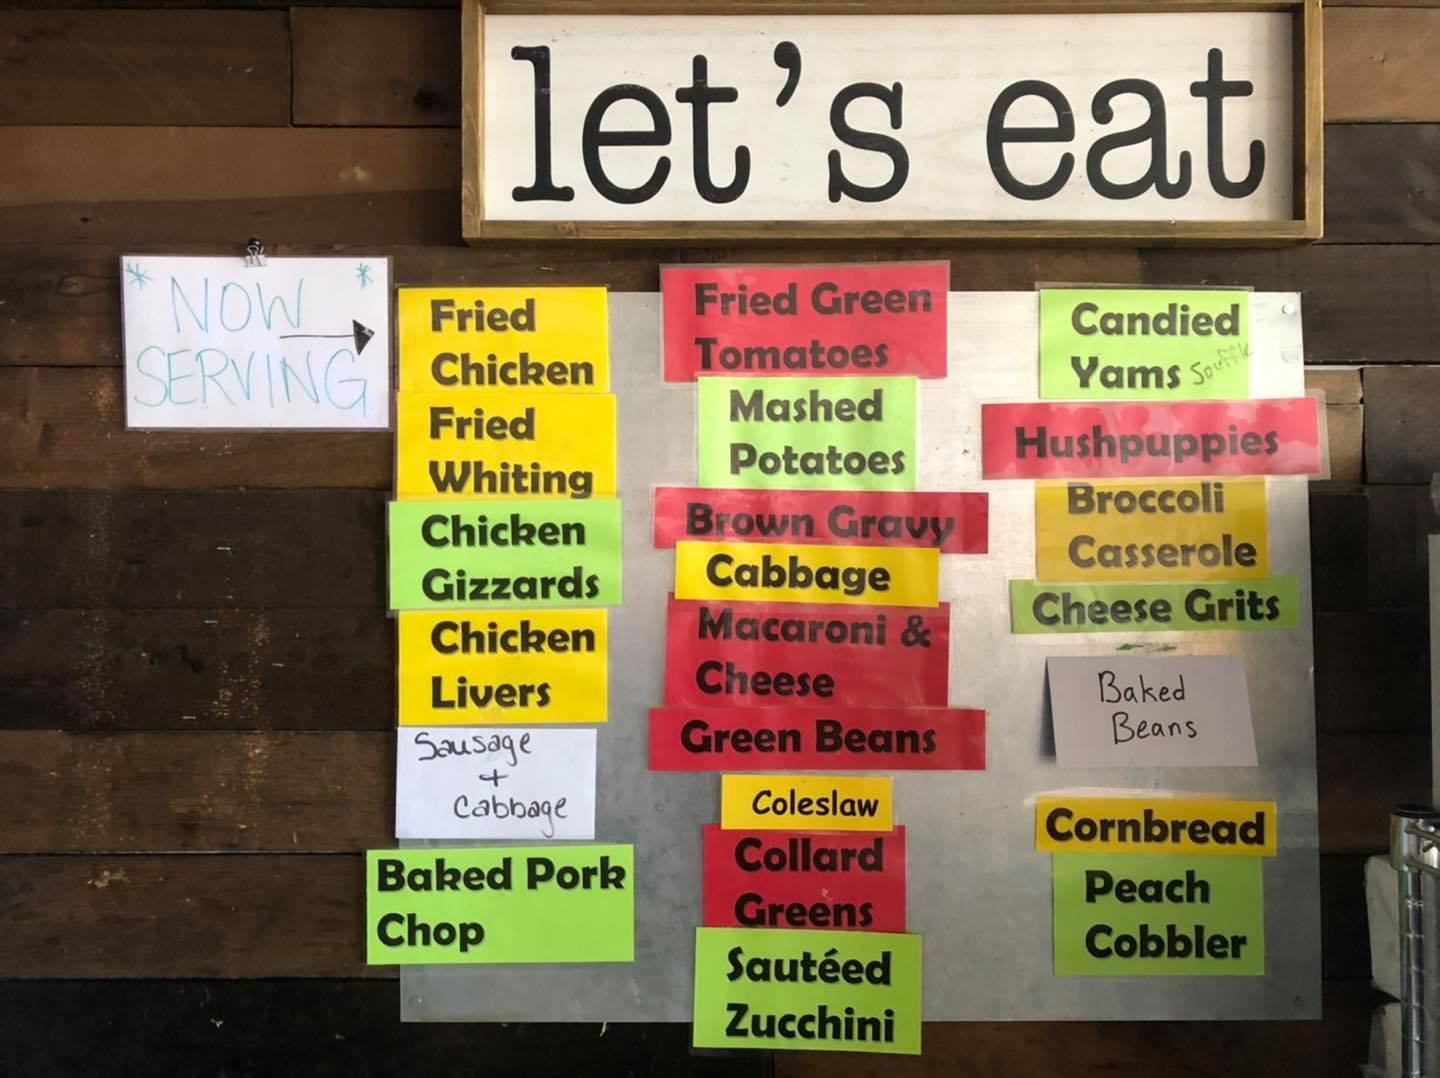 let's eat
* NOW *
SERVING
Fried
Chicken
Fried
Whiting
Chicken
Gizzards
Chicken
Livers
Sausage
+
Cabbage
Baked Pork
Chop
Fried Green
Tomatoes
Mashed
Potatoes
Brown Gravy
Cabbage
Macaroni &
Cheese
Green Beans
Coleslaw
Collard
Greens
Sautéed
Zucchini
Candied
Yams
Hushpuppies
Broccoli
Casserole
Cheese Grits
Baked
Beans
Cornbread
Peach
Cobbler